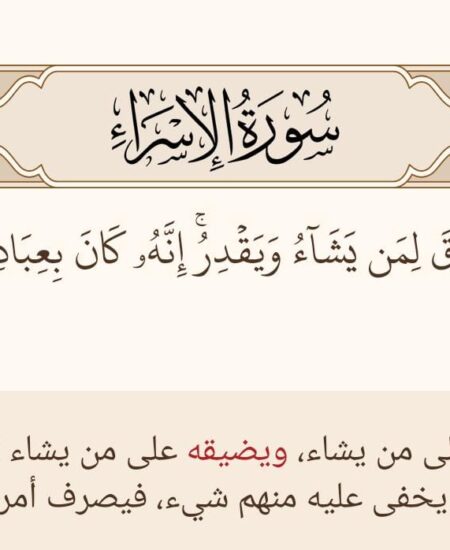 سُورَةُ الإِسْرَاءِ
قَ لِمَن يَشَآءُ وَيَقْدِرُۚ إِنَّهُۥ كَانَ بِعِبَادِ
لى من يشاء، ويضيقه على من يشاء
يخفى عليه منهم شيء، فيصرف أمر